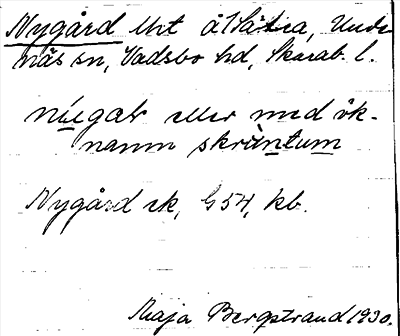 Nygård lht å Sätra, Unde-
näs sn, Vadsbo hd, Skarab. l.
nýgaʀ eller med ök-
namn skräntum
Nygård ek, G 54, kb.
Maja Bergstrand 1930.